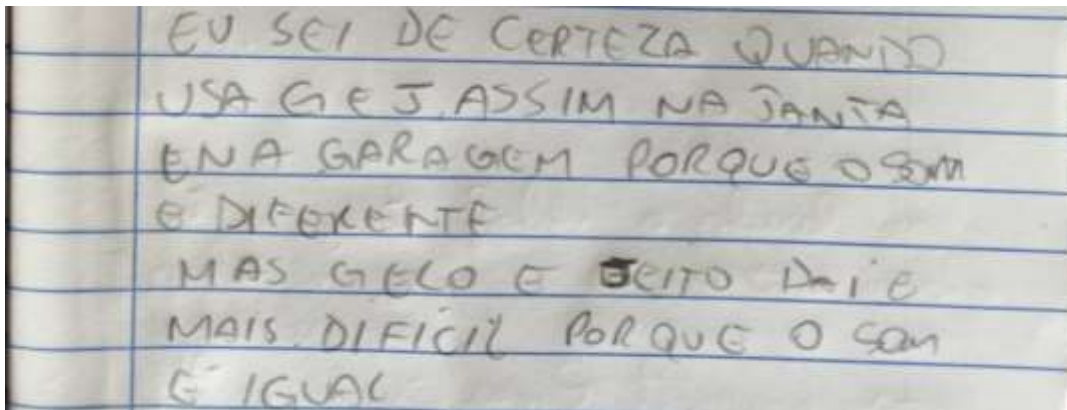 EU SEI DE CERTEZA QUANDO
USA G E J. ASSIM NA JANTA
E NA GARAGEM PORQUE O SOM
E DIFERENTE
MAS GELO E JEITO DAI E
MAIS DIFÍCIL PORQUE O SOM
E IGUAL